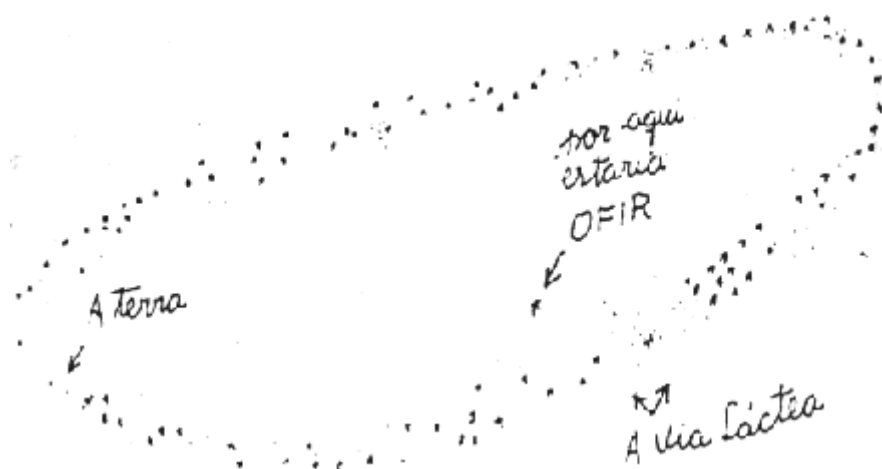 por aqui
estaria
OFIR
A terra
A Via Láctea